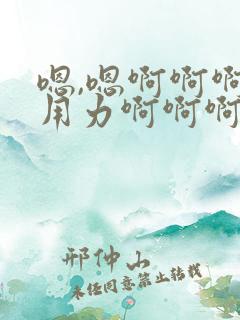 嗯,嗯啊啊啊
用力啊啊啊
邢仲山
未经同意禁止转载